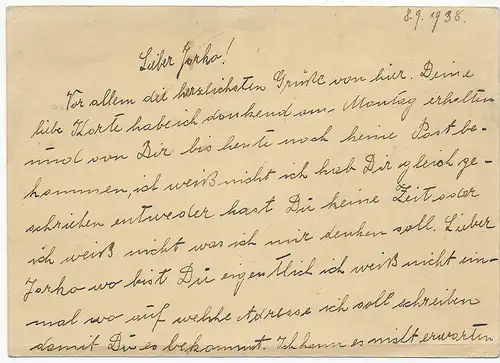 8.9.1938.
Lieber Jorko!
Vor allem die herzlichsten Grüße von hier. Deine
liebe Karte habe ich dankend am Montag erhalten
und von Dir bis heute noch keine Post be-
kommen, ich weiß nicht ich hab Dir gleich ge-
schrieben entweder hast Du keine Zeit oder
ich weiß nicht was ich mir denken soll. Lieber
Jorko wo bist Du eigentlich ich weiß nicht ein-
mal wo auf welche Adresse ich soll schreiben
damit Du es bekommst. Ich kann es nicht erwarten